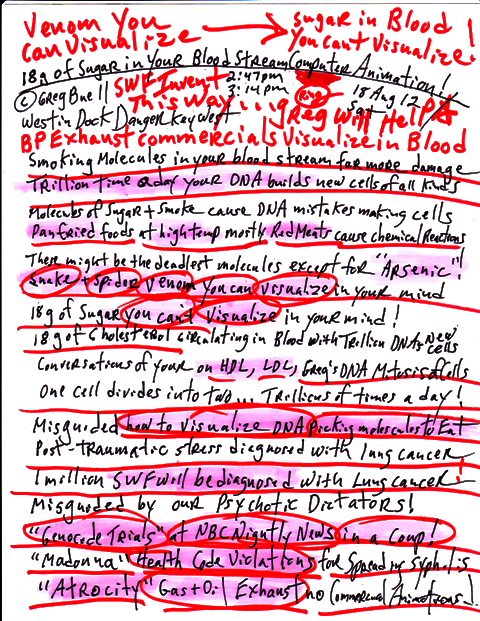 Venom You Can Visualize → Sugar in Blood You Can't Visualize!
18g of Sugar in Your Blood Stream Computer Animation!
© Greg Buell SWF Invent 2:47pm 3:14pm 18 Aug 12 Sat
This Way... Greg Will Help
Westin Dock Danger Key West
BP Exhaust commercials Visualize in Blood
Smoking Molecules in your blood stream far more damage
Trillion time a day your DNA builds new cells of all kinds
Molecules of Sugar + Smoke cause DNA mistakes making cells
Pan Fried foods at high temp mostly Red Meats cause chemical Reactions
There might be the deadliest molecules except for "Arsenic"!
Snake + Spider Venom You can visualize in your mind
18g of Sugar you can't Visualize in your mind!
18g of Cholesterol circulating in Blood with Trillion DNA's New cells
Conversations of your on HDL, LDL, Greg's DNA Mitosis of Cells
One cell divides into two... Trillions of times a day!
Misguided how to Visualize DNA Picking molecules to Eat
Post-traumatic stress diagnosed with lung cancer
1 million SWF will be diagnosed with Lung cancer!
Misguided by our Psychotic Dictators!
"Genocide Trials" at NBC Nightly News in a Coup!
"Madonna" Health Code Violations for Spreading Syphilis
"Atrocity" Gas + Oil Exhaust no Commercial Animations!